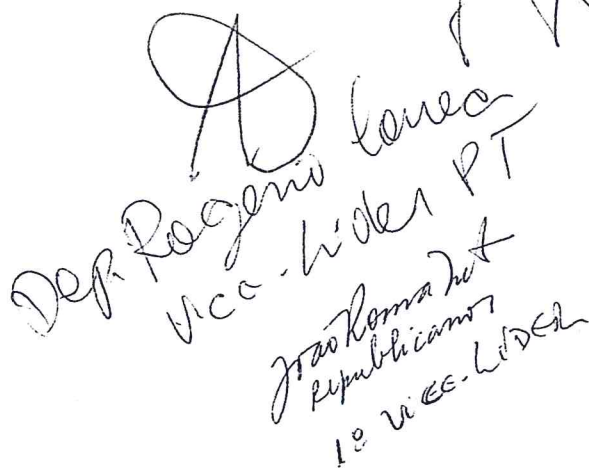 Dep. Rogério Correa
Vice-Líder PT
João Roma Net
Republicanos
1º VICE-LÍDER